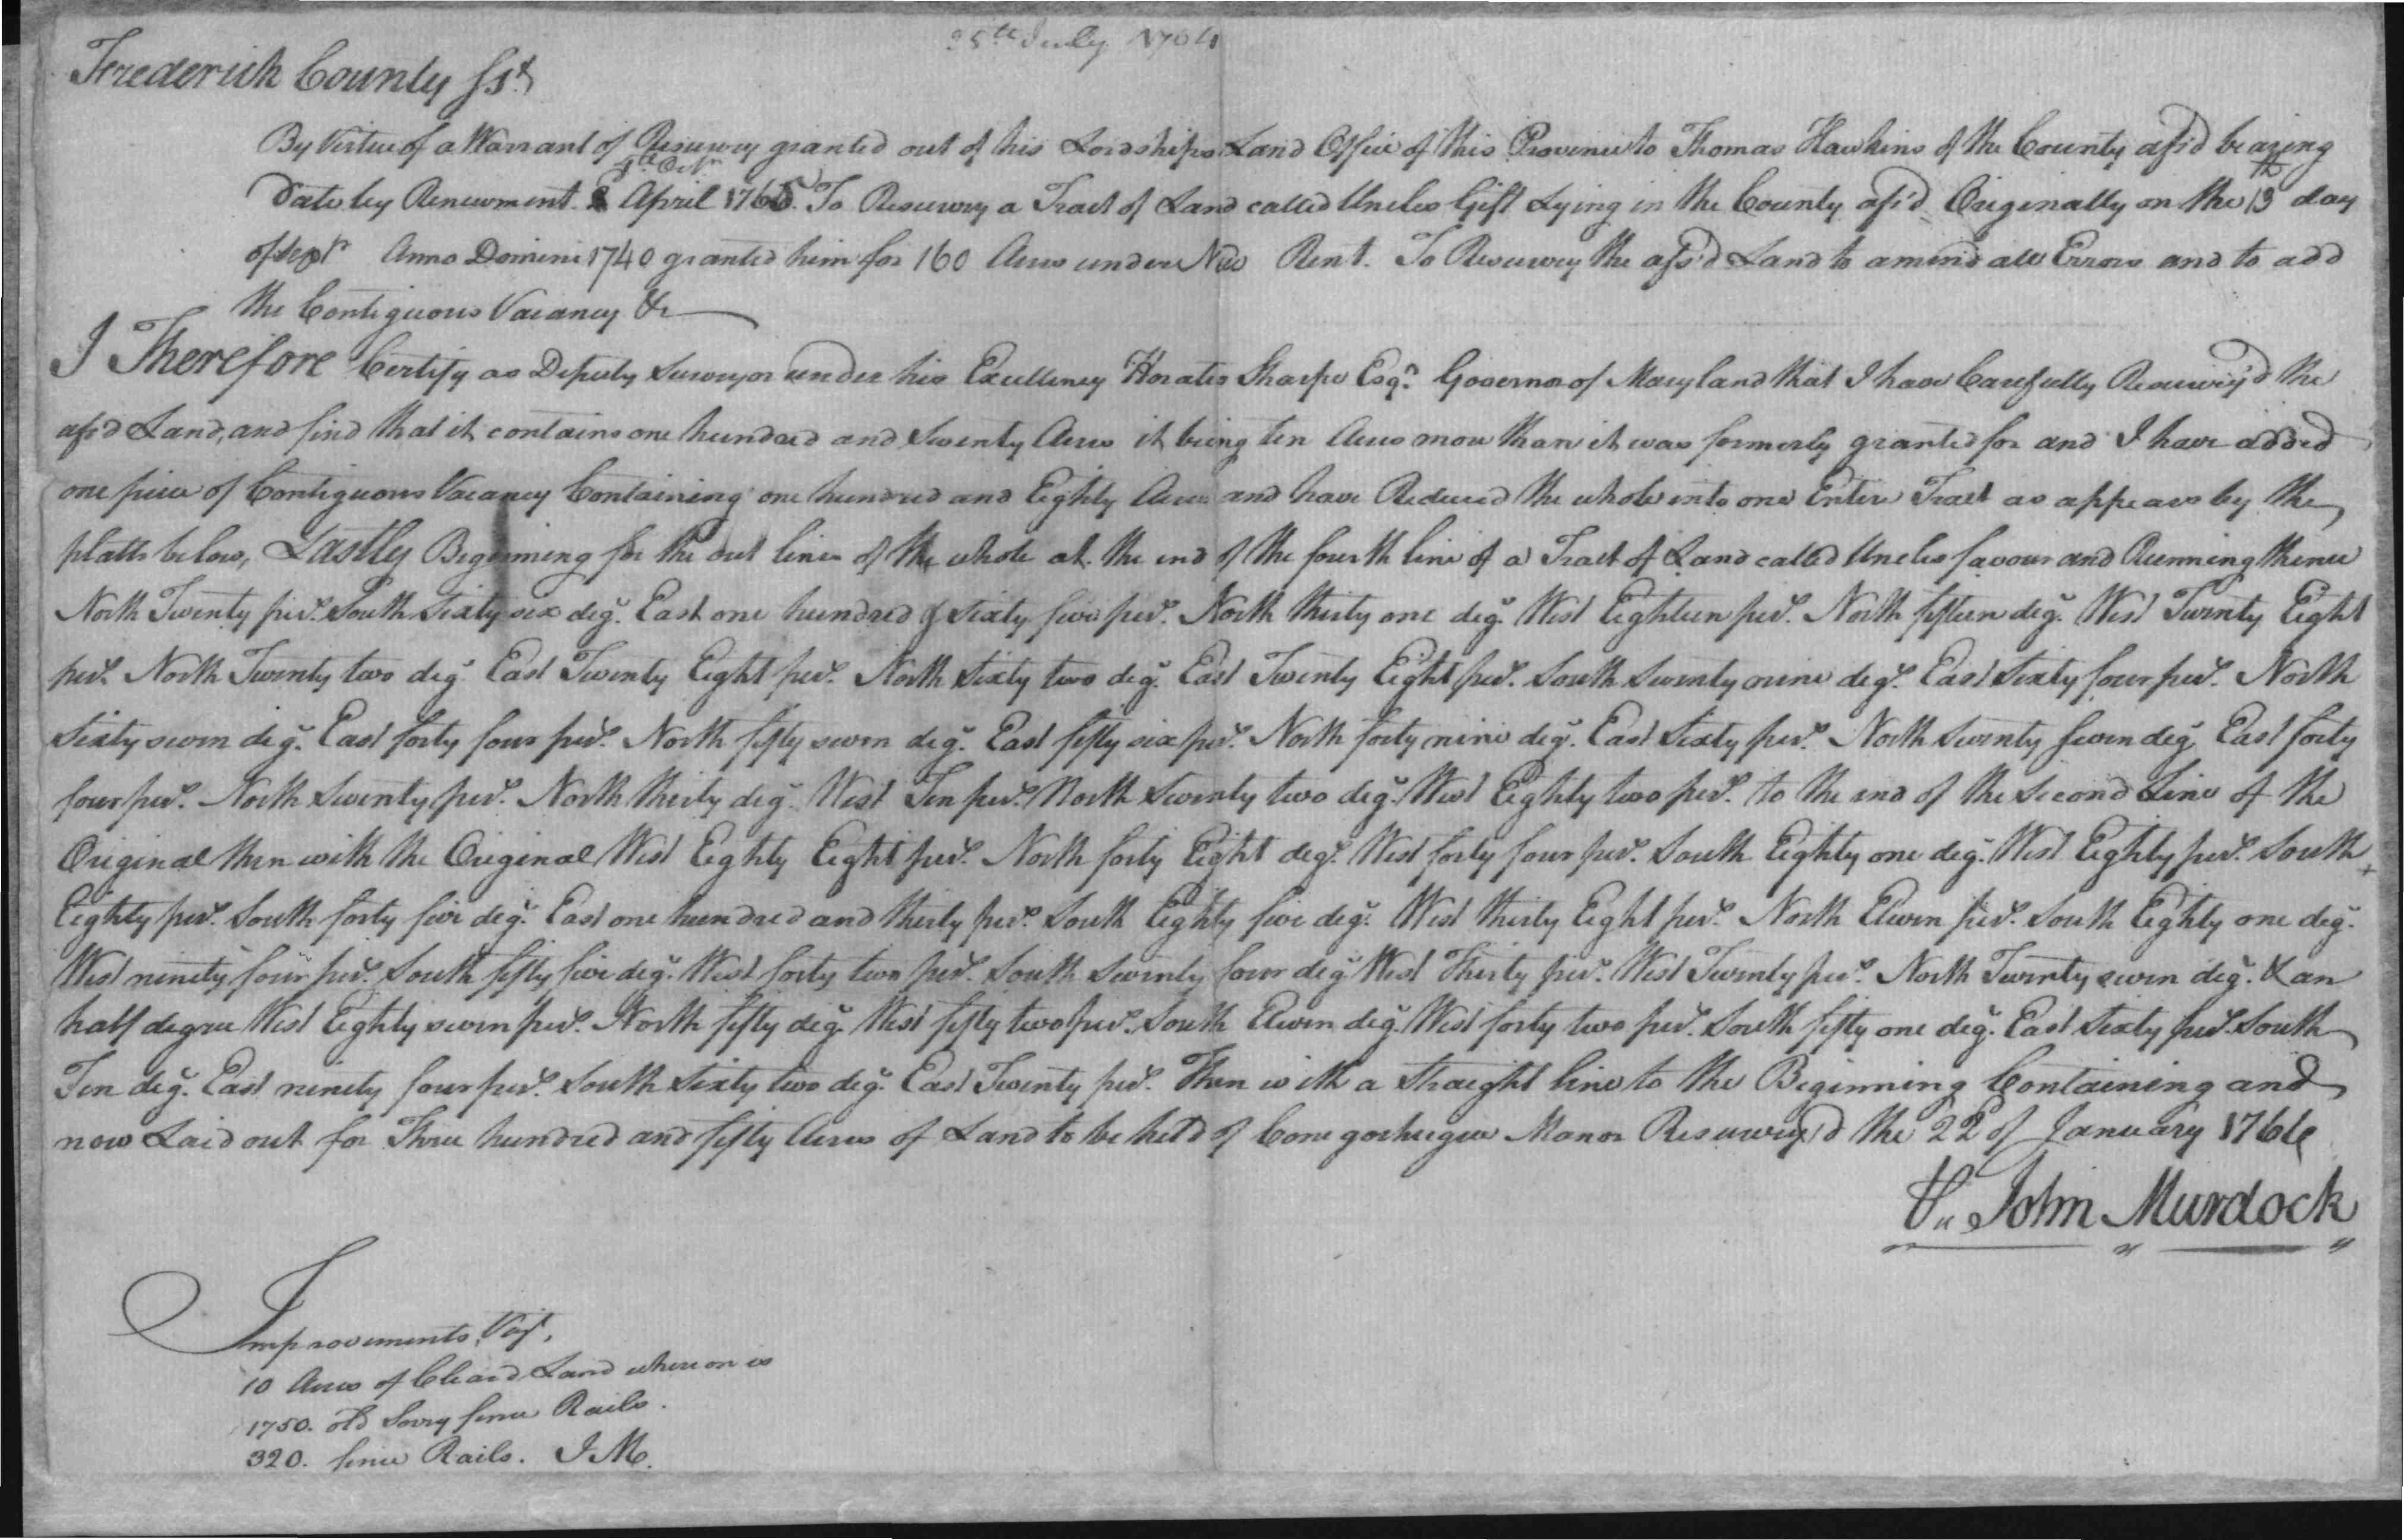 25th July 1764
Frederick County Sst
By Virtue of a Warrant of Resurvey granted out of his Lordships Land Office of this Province to Thomas Hawkins of the County afs'd bearing
9th Octr
Date by Renewment April 1765. To Resurvey a Tract of Land called Uncles Gift Lying in the County afs'd Originally on the 13th day
of Sepr Anno Domini 1740 granted him for 160 Acres under New Rent. To Resurvey the afs'd Land to amend all Errors and to add
the Contiguous Vacancy &c
I Therefore Certify as Deputy Surveyor under his Excellency Horatio Sharpe Esqr. Governor of Maryland that I have Carefully Resurvey'd the
afs'd Land, and find that it contains one hundred and Seventy Acres it being ten Acres more than it was formerly granted for and I have added
one piece of Contiguous Vacancy Containing one hundred and Eighty Acres and have Reduced the whole into one Entire Tract as appears by the
platts below, Lastly Beginning for the out lines of the whole at the end of the fourth line of a Tract of Land called Uncles favour and Running thence
North Twenty ps. South Sixty six deg. East one hundred & Sixty five ps. North thirty one deg. West Eighteen ps. North fifteen deg. West Twenty Eight
ps. North Twenty two deg. East Twenty Eight ps. North Sixty two deg. East Twenty Eight ps. South Seventy nine deg. East Sixty four ps. North
Sixty seven deg. East forty four ps. North fifty seven deg. East fifty six ps. North forty nine deg. East Sixty ps. North Seventy Seven deg. East forty
four ps. North Seventy ps. North thirty deg. West Ten ps. North Seventy two deg. West Eighty two ps. to the end of the Second Line of the
Original then with the Original West Eighty Eight ps. North forty Eight deg. West forty four ps. South Eighty one deg. West Eighty ps. South
Eighty ps. South forty five deg. East one hundred and thirty ps. South Eighty five deg. West thirty Eight ps. North Eleven ps. South Eighty one deg.
West ninety four ps. South fifty five deg. West forty two ps. South Seventy four deg. West Thirty ps. West Twenty ps. North Twenty seven deg. & an
half degree West Eighty seven ps. North fifty deg. West fifty two ps. South Eleven deg. West forty two ps. South fifty one deg. East Sixty ps. South
Ten deg. East ninety four ps. South Sixty two deg. East Twenty ps. Then with a Straight line to the Beginning Containing and
now Laid out for Three hundred and fifty Acres of Land to be held of Conegocheegue Manor Resurvey'd the 22d of January 1766
John Murdock
Improvements Vizt.
10 Acres of Cleard Land whereon is
1750. old Sorry fence Rails.
320. fence Rails. J M.